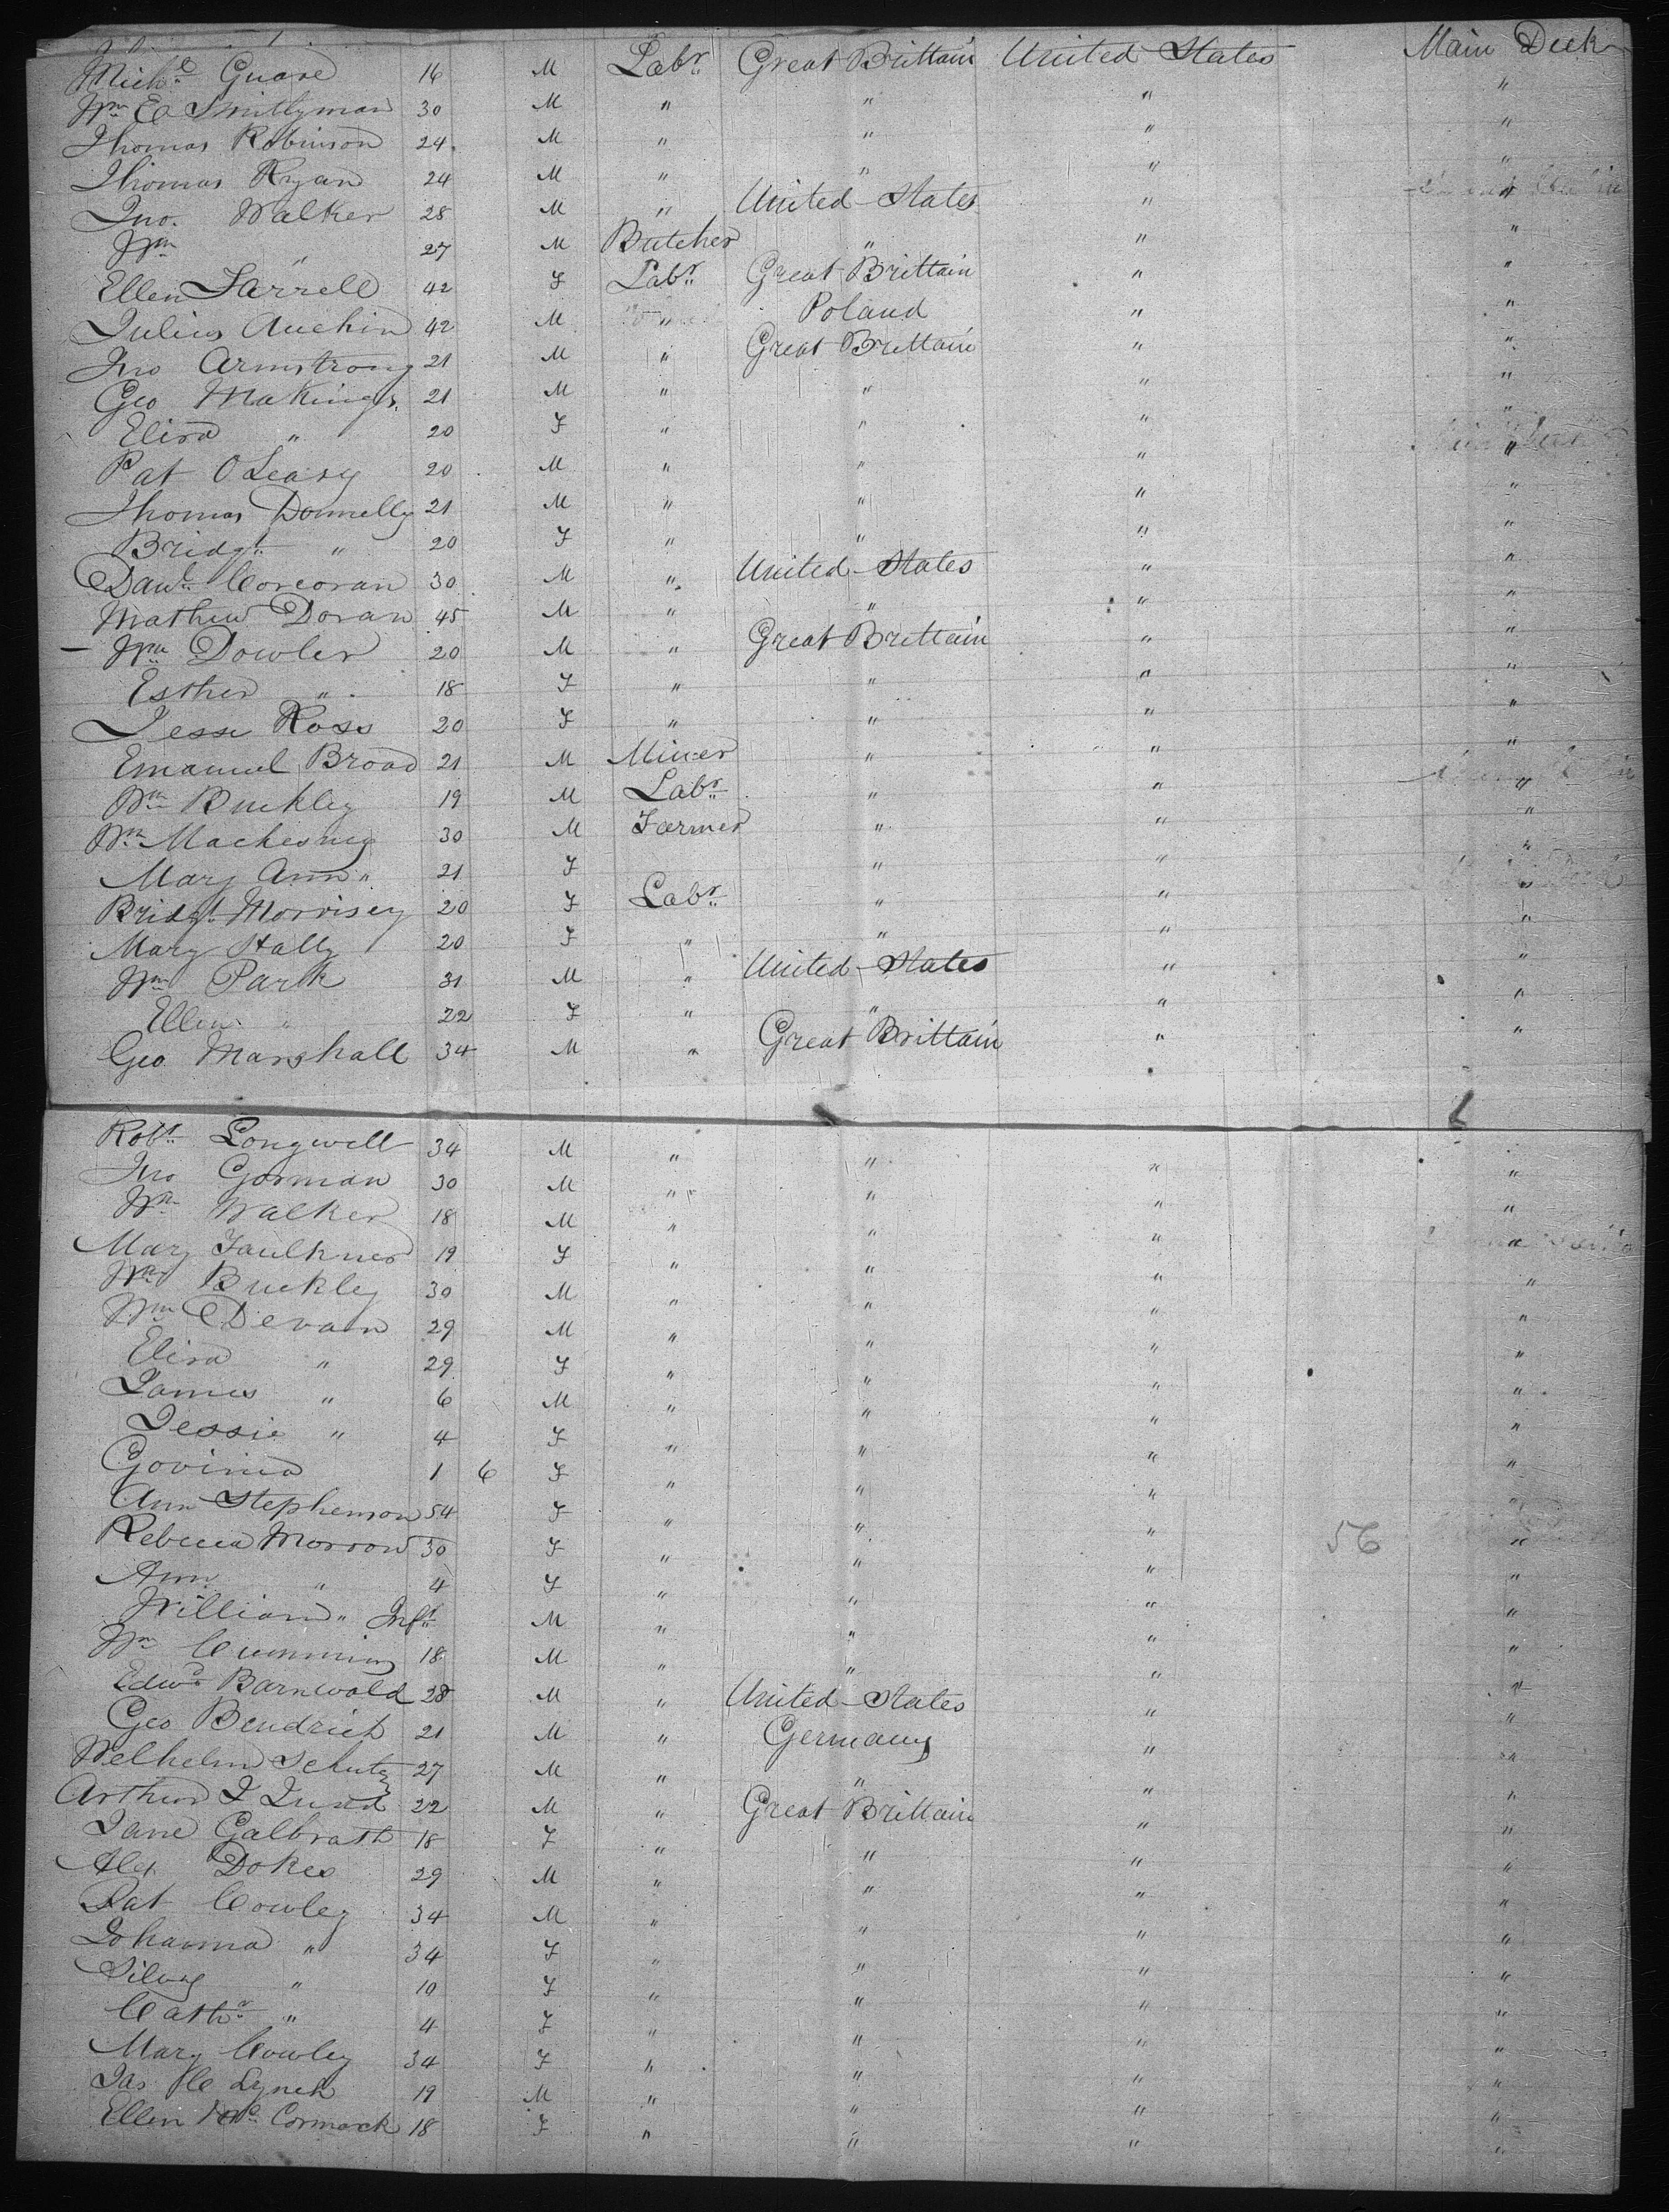 Mich.l Guare 16 M Labr. Great Brittain United States Main Deck
Wm E Smillyman 30 M " " " "
Thomas Robinson 24 M " " " "
Thomas Ryan 24 M " " " "
Jno. Walker 28 M " United States " "
Wm " 27 M Butcher " " "
Ellen Farrell 42 F Labr. Great Brittain " "
Julius Auchin 42 M " Poland " "
Jno Armstrong 21 M " Great Brittain " "
Geo Makings 21 M " " " "
Eliza " 20 F " " " "
Pat O'Leary 20 M " " " "
Thomas Donnelly 21 M " " " "
Bridgt. " 20 F " " " "
Danl. Corcoran 30 M " United States " "
Mathew Doran 45 M " " " "
Wm Dowler 20 M " Great Brittain " "
Esther " 18 F " " " "
Jesse Ross 20 F " " " "
Emanuel Broad 21 M Miner " " "
Wm Buckley 19 M Labr. " " "
Wm Machesney 30 M Farmer " " "
Mary Ann " 21 F " " "
Bridgt. Morrisey 20 F Labr. " " "
Mary Hally 20 F " " " "
Wm Park 31 M " United States " "
Ellen " 22 F " " " "
Geo Marshall 34 M " Great Brittain " "
Robt. Longwell 34 M " " " "
Jno Gorman 30 M " " " "
Wm Walker 18 M " " " "
Mary Faulkner 19 F " " " "
Wm Buckley 30 M " " " "
Wm Devan 29 M " " " "
Eliza " 29 F " " " "
James " 6 M " " " "
Jessie " 4 F " " " "
Govinia 1 6 F " " " "
Ann Stephenson 54 F " " " "
Rebecca Morrow 30 F " " " 56 "
Ann " 4 F " " " "
William " Inft. M " " " "
Wm Cumming 18 M " " " "
Edwd. Barnwald 28 M " United States " "
Geo Bendrich 21 M " Germany " "
Welhelm Schutz 27 M " " " "
Arthur J Lund 22 M " Great Brittain " "
Jane Galbrath 18 F " " " "
Alex Dokes 29 M " " " "
Pat Cowley 34 M " " " "
Johanna " 34 F " " " "
Silvy " 10 F " " " "
Cathr. " 4 F " " " "
Mary Cowley 34 F " " " "
Jas C Lynch 19 M " " " "
Ellen McCormack 18 F " " " "